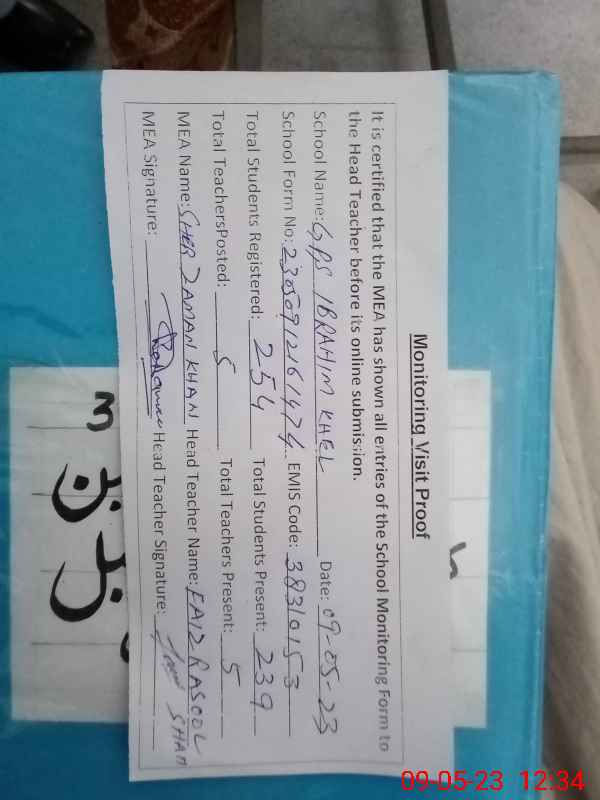 Monitoring Visit Proof
It is certified that the MEA has shown all entries of the School Monitoring Form to
the Head Teacher before its online submission.
School Name: GPS IBRAHIM KHEL Date: 09-05-23
School Form No: 23050912161474 EMIS Code: 38310153
Total Students Registered: 254 Total Students Present: 239
Total TeachersPosted: 5 Total Teachers Present: 5
MEA Name: SHER ZAMAN KHAN Head Teacher Name: FAIZ RASOOL
SHAH
MEA Signature: Head Teacher Signature:
09-05-23 12:34